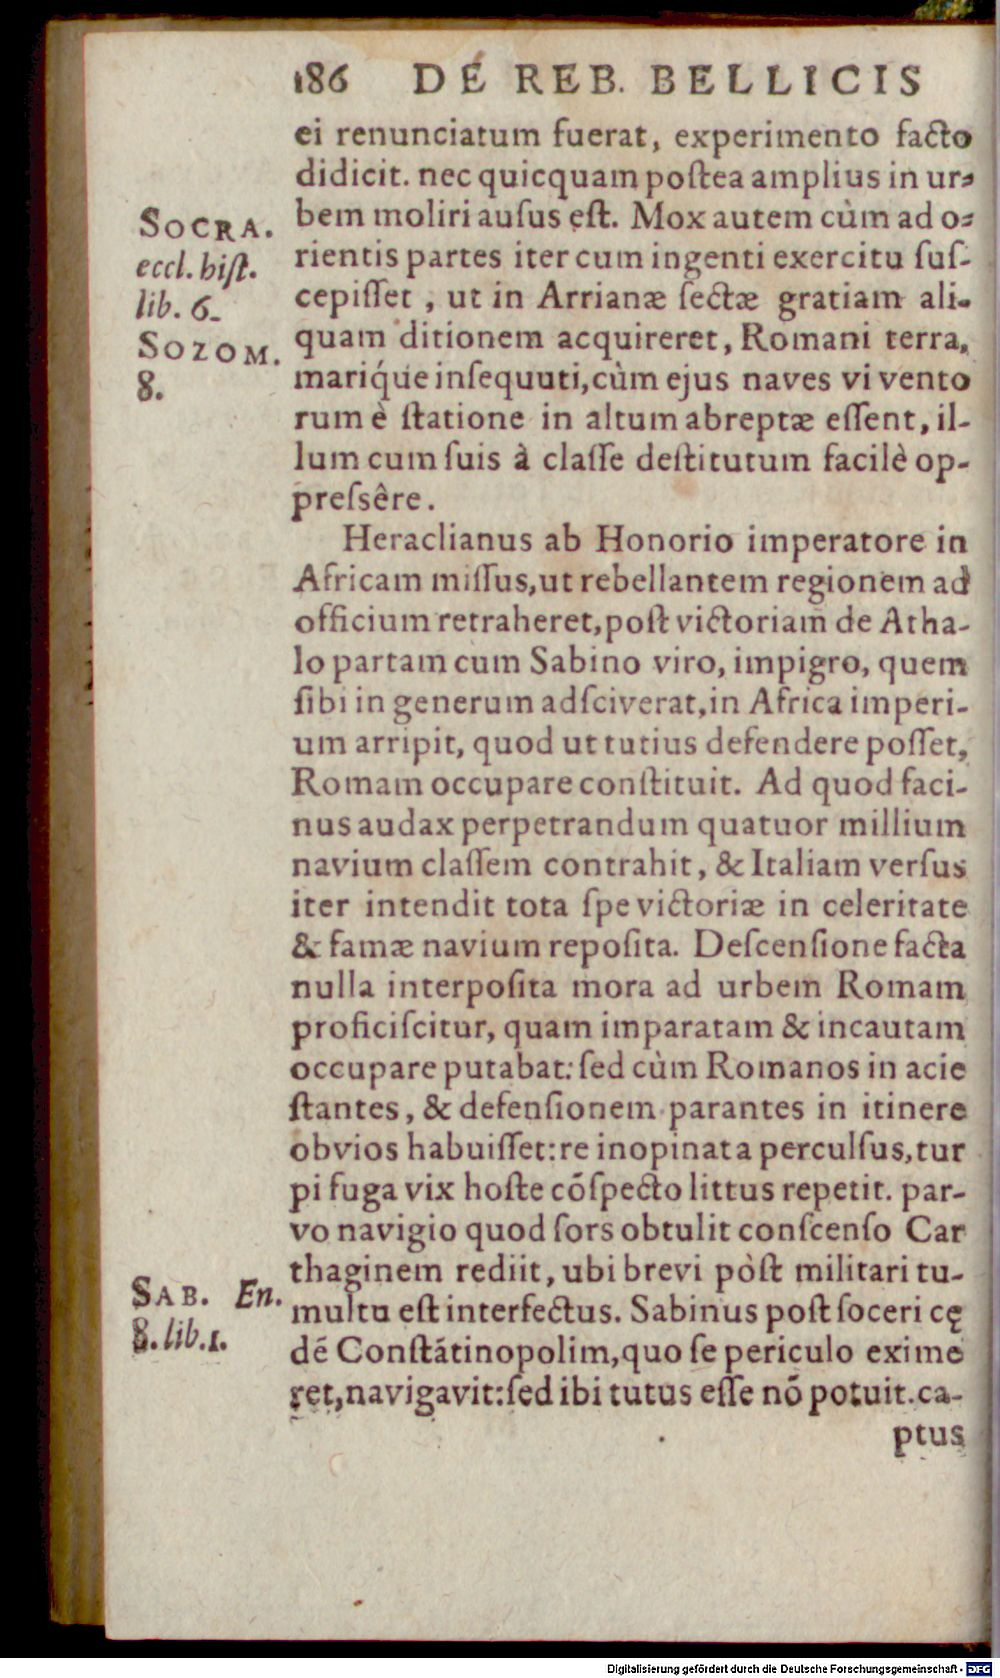 186 DE REB. BELLICIS
ei renunciatum fuerat, experimento facto
didicit. nec quicquam poſtea amplius in ur-
bem moliri auſus eſt. Mox autem cùm ad o-
rientis partes iter cum ingenti exercitu ſuſ-
cepiſſet, ut in Arrianæ ſectæ gratiam ali-
quam ditionem acquireret, Romani terra,
mariq́;ue inſequuti, cùm ejus naves vi vento
rum è ſtatione in altum abreptæ eſſent, il-
lum cum ſuis à claſſe deſtitutum facilè op-
preſsêre.
SOCRA.
eccl. hiſt.
lib. 6.
SOZOM.
8.
Heraclianus ab Honorio imperatore in
Africam miſſus, ut rebellantem regionem ad
officium retraheret, poſt victoriam de Atha-
lo partam cum Sabino viro, impigro, quem
ſibi in generum adſciverat, in Africa imperi-
um arripit, quod ut tutius defendere poſſet,
Romam occupare conſtituit. Ad quod faci-
nus audax perpetrandum quatuor millium
navium claſſem contrahit, & Italiam verſus
iter intendit tota ſpe victoriæ in celeritate
& famæ navium repoſita. Deſcenſione facta
nulla interpoſita mora ad urbem Romam
proficiſcitur, quam imparatam & incautam
occupare putabat: ſed cùm Romanos in acie
ſtantes, & defenſionem parantes in itinere
obvios habuiſſet: re inopinata perculſus, tur
pi fuga vix hoſte cōſpecto littus repetit. par-
vo navigio quod ſors obtulit conſcenſo Car
thaginem rediit, ubi brevi pòſt militari tu-
multu eſt interfectus. Sabinus poſt ſoceri cę
dē Conſtātinopolim, quo ſe periculo exime
ret, navigavit: ſed ibi tutus eſſe nō potuit. ca-
ptus
SAB. En.
8. lib. 1.
Digitalisierung gefördert durch die Deutsche Forschungsgemeinschaft - DFG